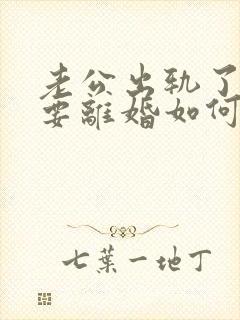 老公出轨了
要離婚如何
七葉一地丁